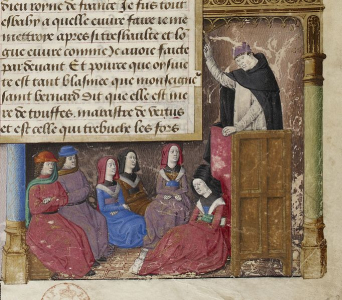 dieu torne de france Je fus tout
esbahy a quelle euvre faire ie me
mettroye apres si treshaulte et lo
gue euvre comme Jeavoie faicte
par devant Et pource que oysiue
te est tant blasmee que monseigne
saint bernard Dit que elle est me
re de touffes, marastre de vertus
et est celle qui trebuche les fors